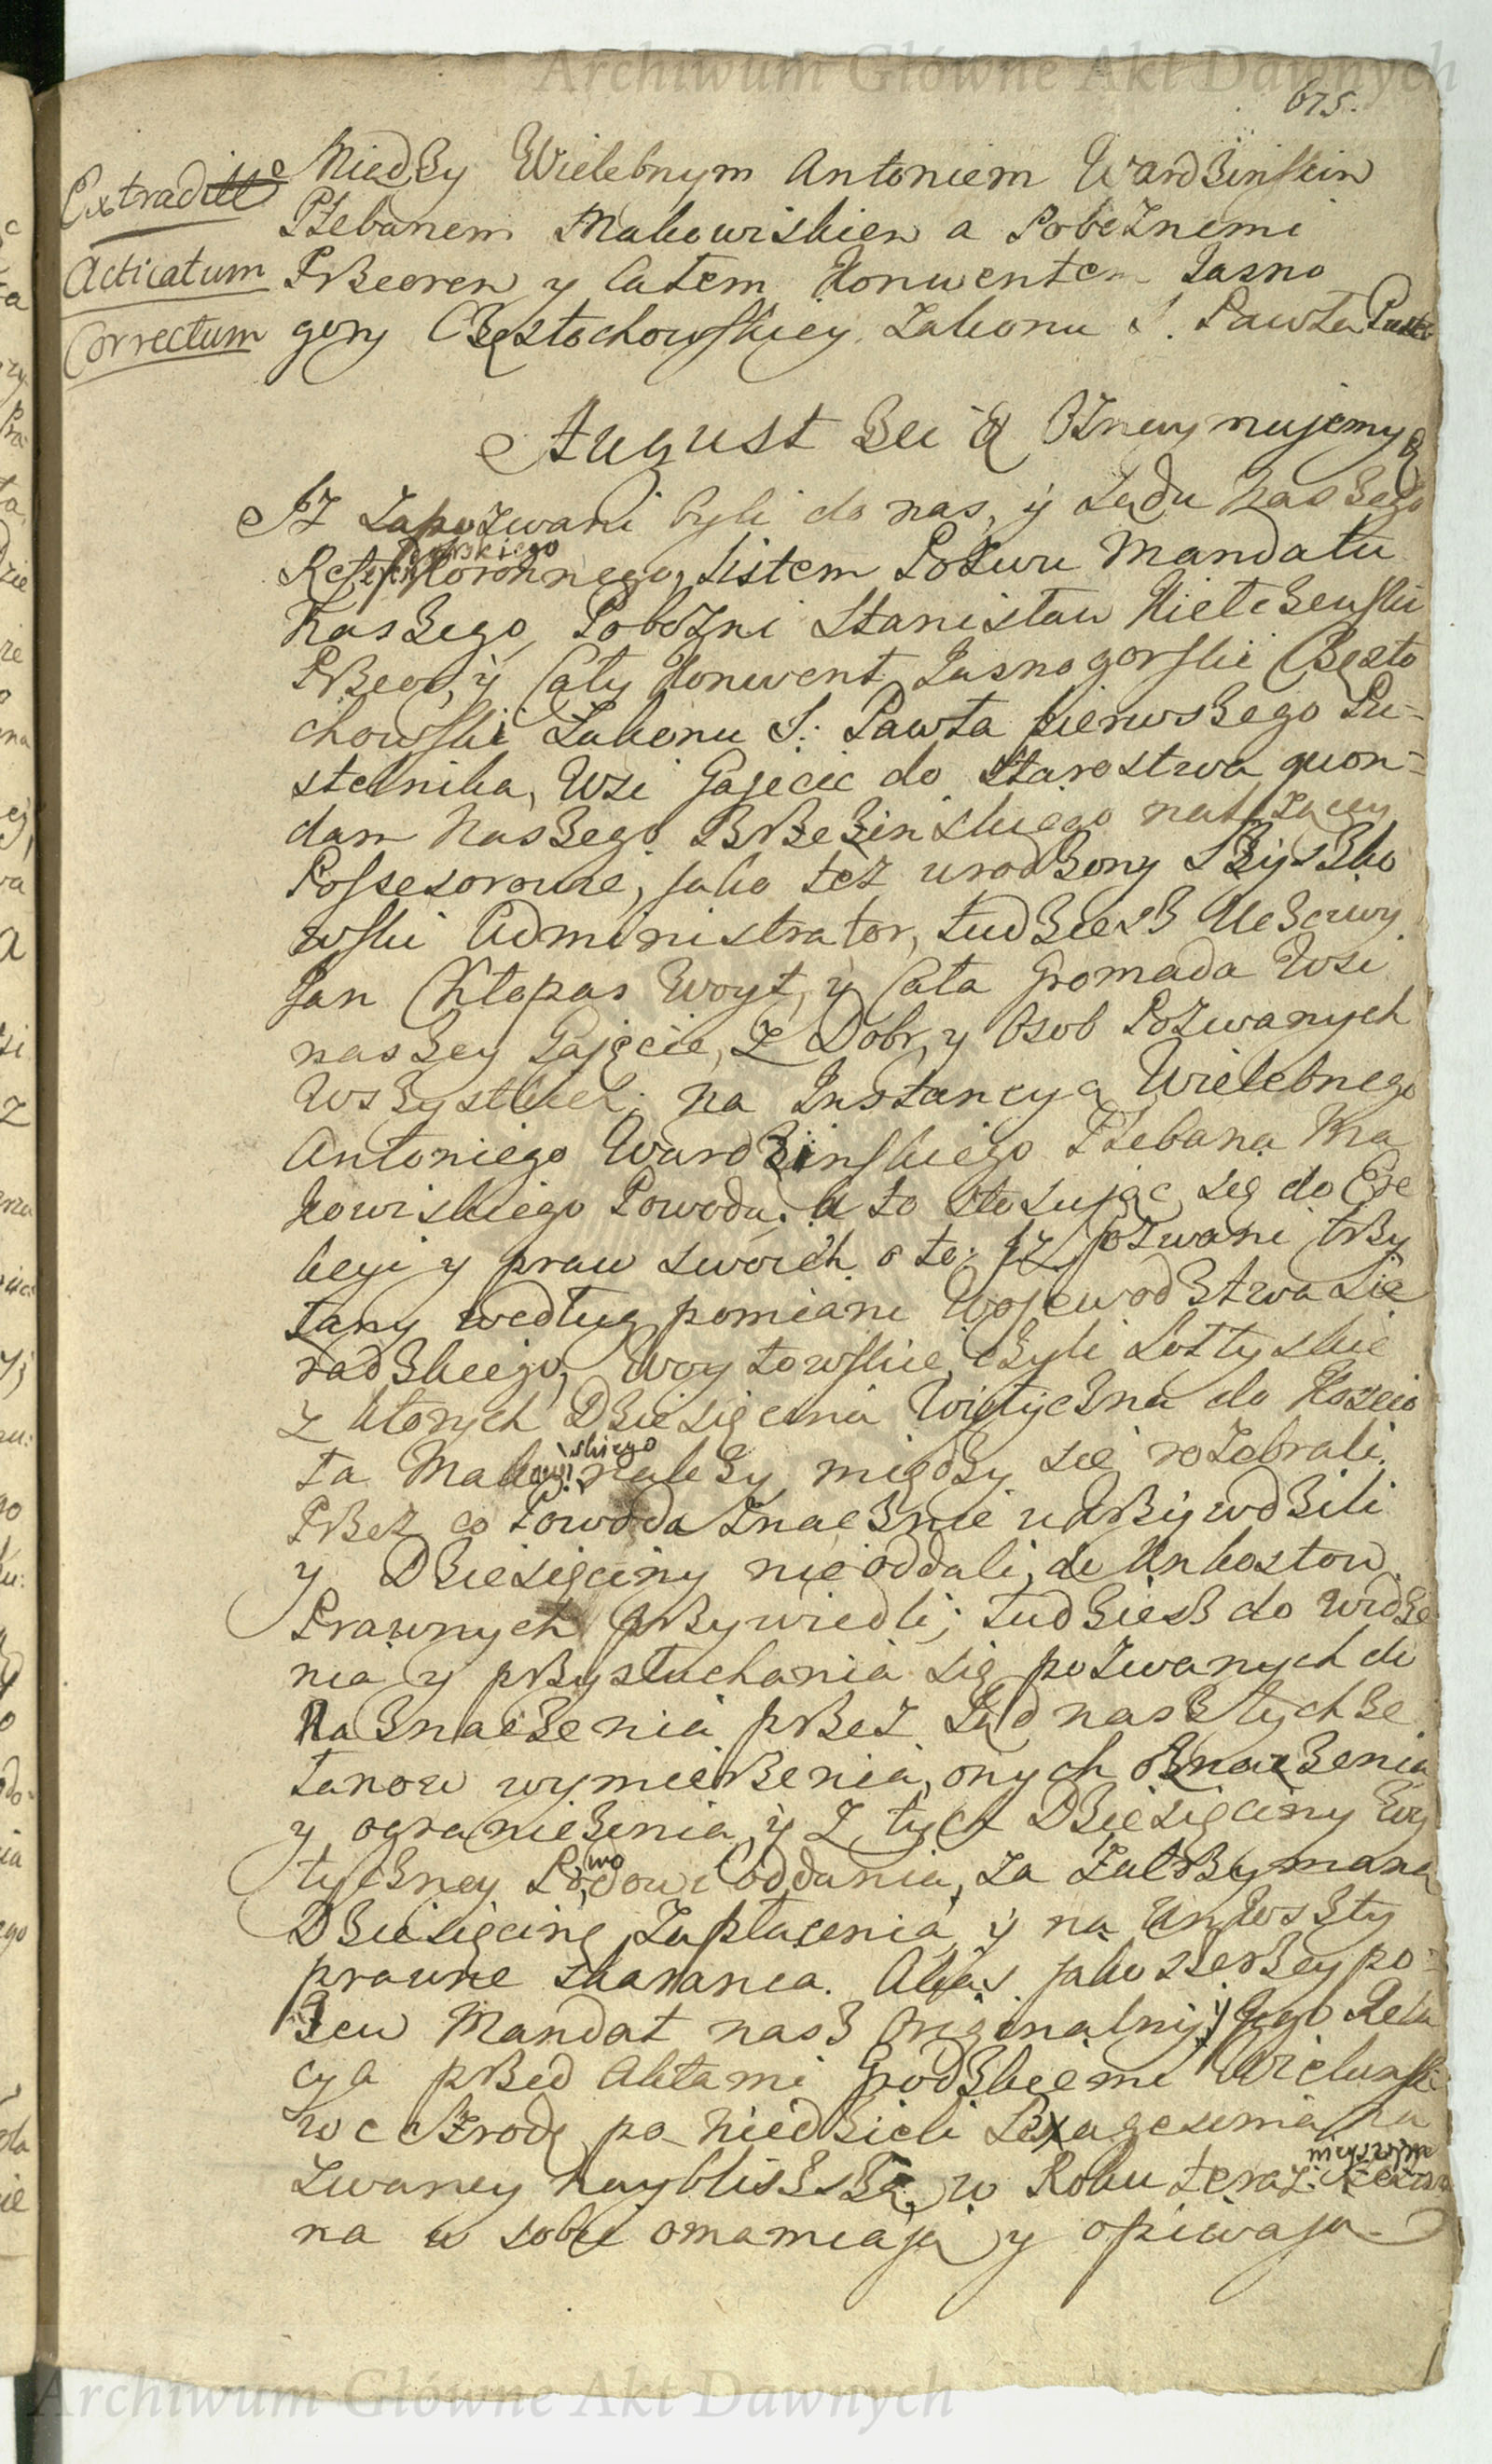 Archiwum Główne Akt Dawnych
675.
Extraditt
Acticatum
Correctum
Miedzy Wielebnym Antoniem Wardzinskim
Plebanem Makowiskiem a Pobożnemi
Przeorem y Całem Konwentem Jasno
gory Częstochowskiey Zakonu S. Pawła
August &c. & Oznaymujemy
Jż Zapozwani byli do nas, y Sądu naszego
Koronnego, Listem Pozwu Mandatu
Naszego, Pobożni Stanisław Kiełczewski
Przeor, y Cały Konwent Jasnogorski Często
chowski Zakonu S. Pawła pierwszego Pu=
stelnika, Wsi Gajęcic do Starostwa quon=
dam Naszego Brzezinskiego należącey
Possesorowie, jako też urodzony
Administrator, tudziesz Uczciwy
Jan Chłopas Woyt, y Cała Gromada Wsi
naszey Gajęcie, Z Dobr, y Osob Pozwanych
Wszystkich. na Instancyą Wielebnego
Antoniego Wardzinskiego Plebana Ma
kowiskiego Powoda. A to stosując się do Ere
kcyi y praw swoich o to; Jż pozwani trzy
Łany według pomiaru Wojewodztwa Sie
radzkiego, Woytowskie, czyli Sołtyskie
z ktorych Dziesięcina Wytyczna do Koscio
ła Makowiskiego należy między się rozebrali.
Przez co Powoda znacznie ukrzywdzili
y Dziesięciny nie oddali, do Unkosztow
Prawnych przywiedli; tudziesz do widze
nia y przysłuchania się pozwanych do
Naznaczenia przez Sąd nasz tychze
Łanow wymierzenia, onych oznaczenia
y ograniczenia, y Z tych Dziesięciny Wy
tyczney Powodowi oddania, za zatrzymaną
Dziesięcinę Zapłacenia y na Unkoszty
prawne skazania. Alias jako szerzey po=
zew Mandat nasz Originalny, y Jego Rela
cya przed Aktami Grodzkiemi Wielunski
w Srodę po Niedzieli Sexagesima na
zwaney naybliszszą w Roku teraz nieyszym
na w sobie omawiają y opiwają
Archiwum Główne Akt Dawnych